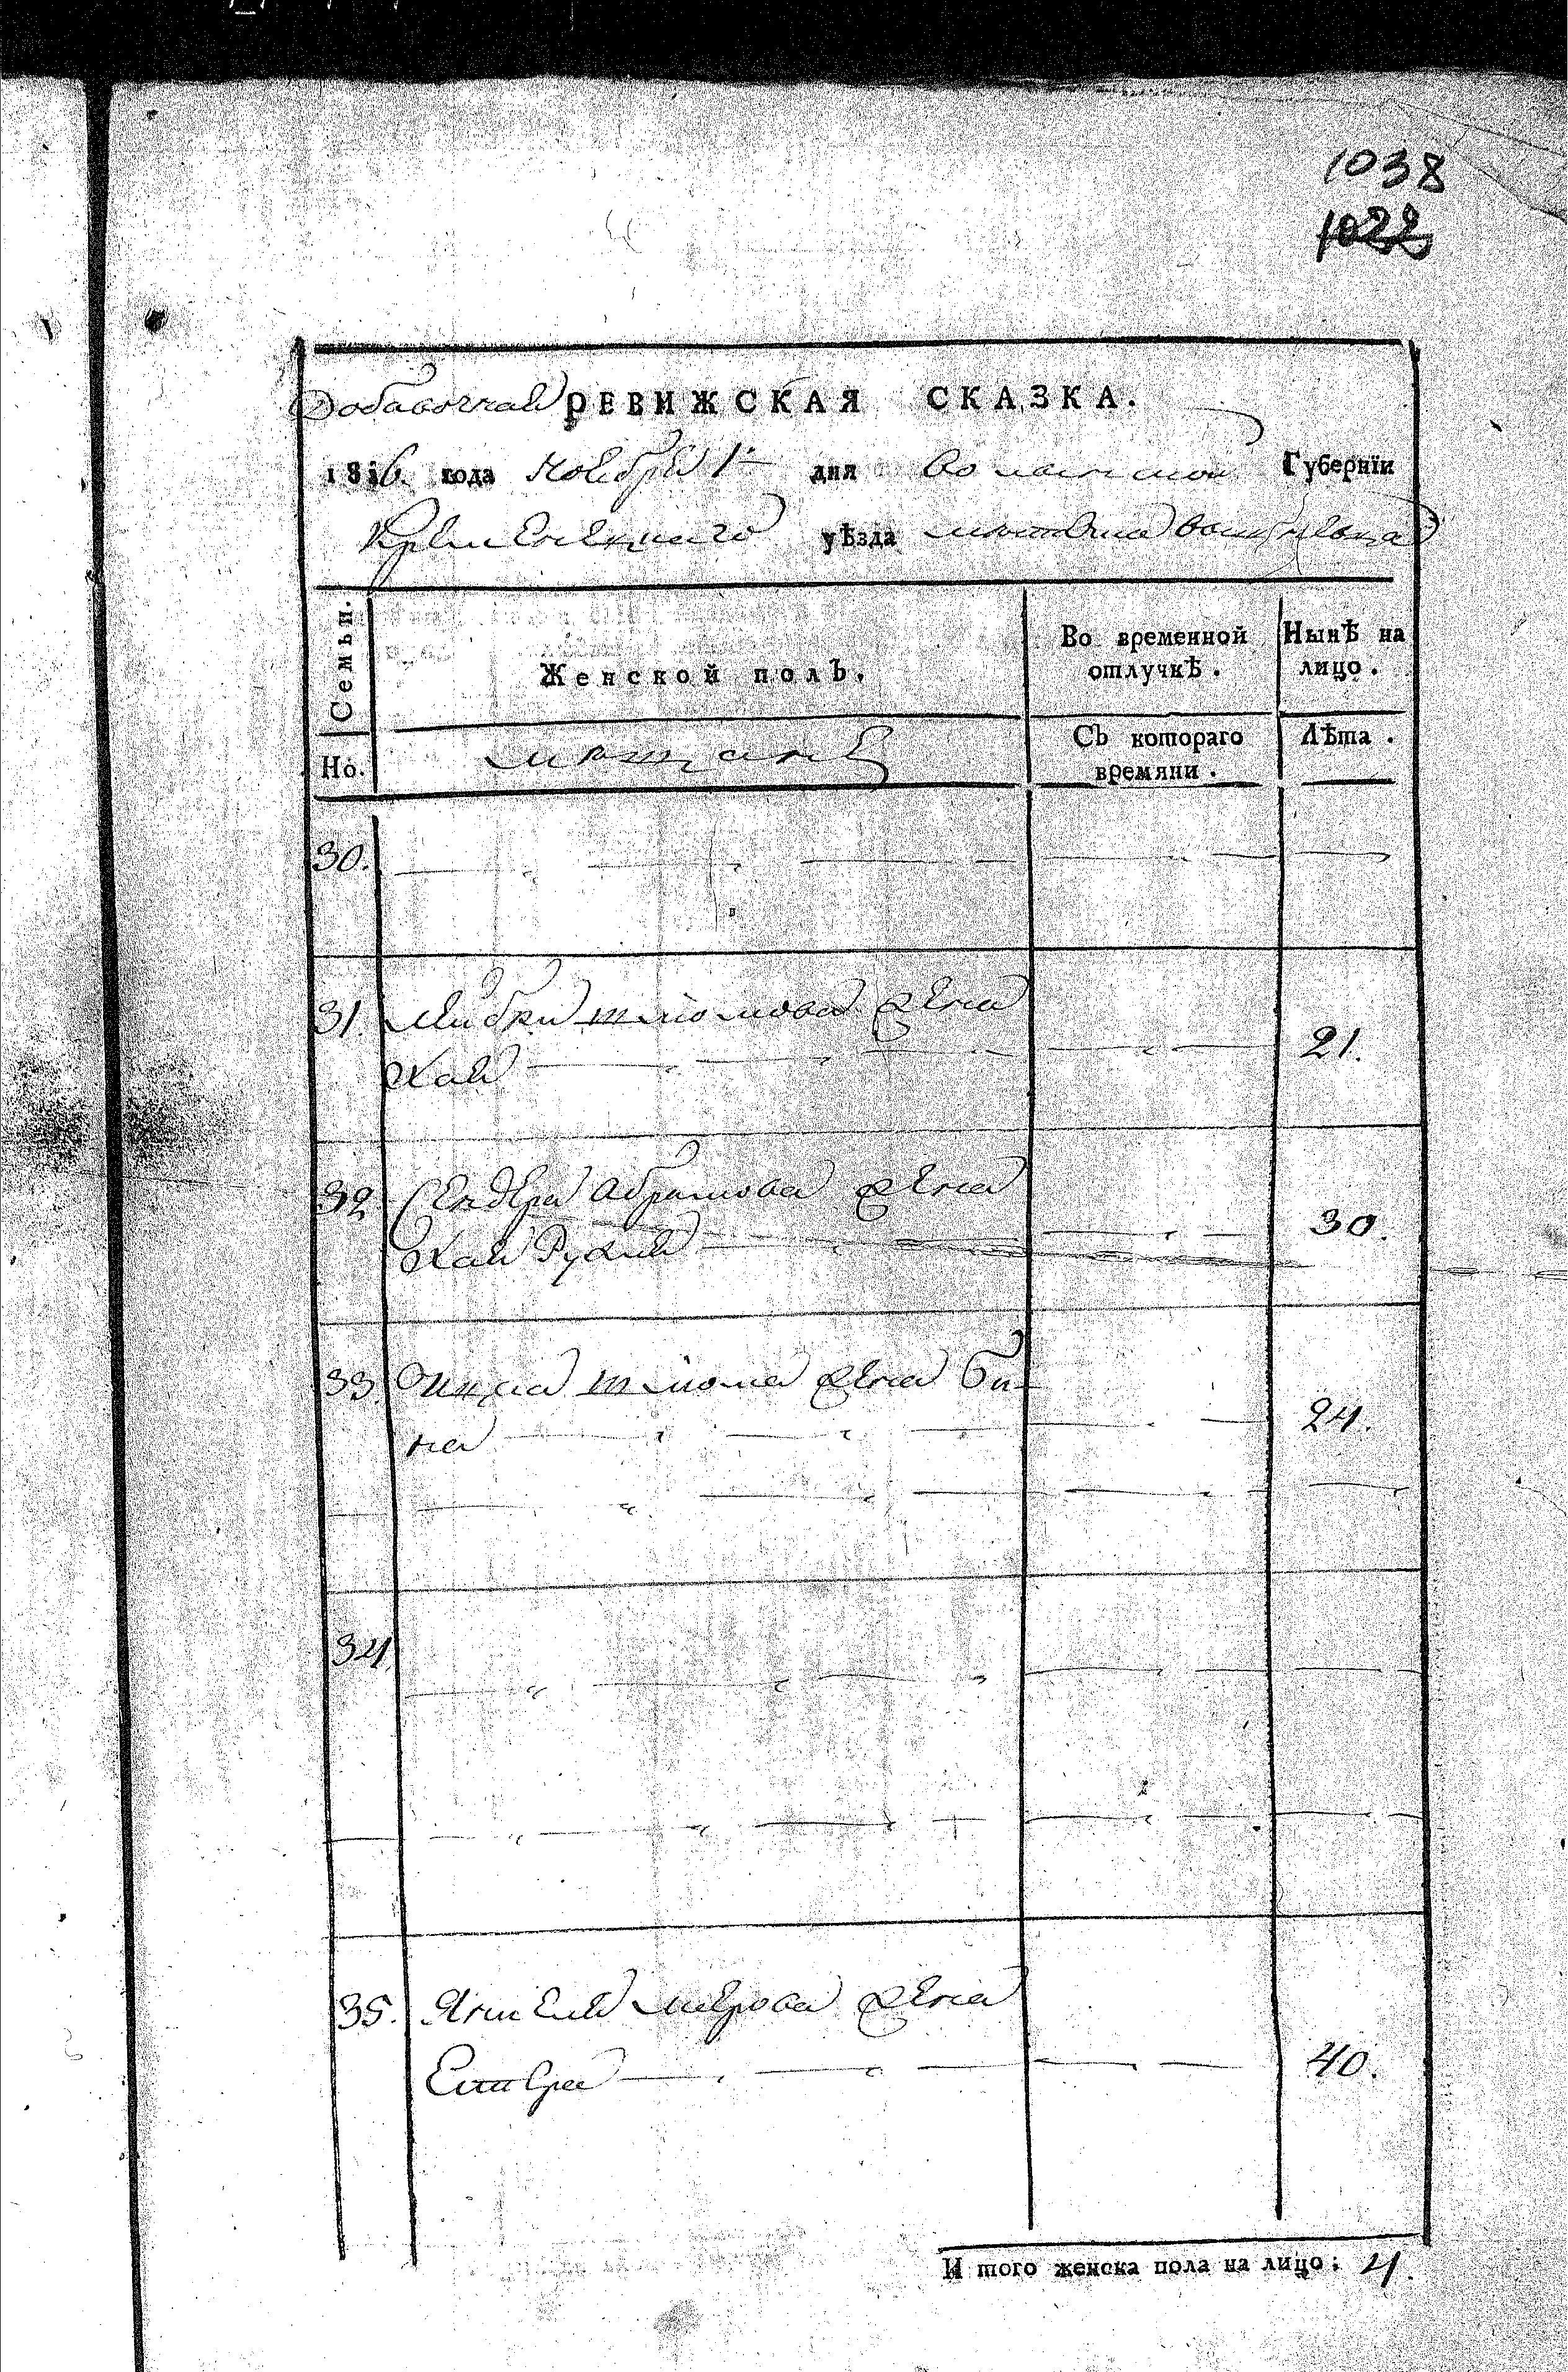 1038
1022
Добавочная РЕВИЖСКАЯ СКАЗКА.
1816. года Ноября 1 дня Волынской Губернїи
Кременецкаго уѣзда местечка
Семьи. Женской полъ. Во временной отлучкѣ. Нынѣ на лицо.
Но. мещане Съ котораго времяни. Лѣта.
30.
31. жена
Хая 21.
32. Сендера Абрамова жена
Хая Рухля 30.
33. Шлиома жена Би-
на 24.
34.
35. Янкеля Меерова жена
Естера 40.
И того женска пола на лицо: 4.